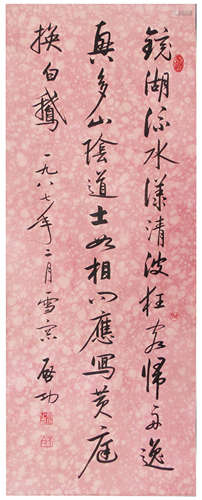 鏡湖流水漾清波狂客歸舟逸
興多山陰道士如相應寫黃庭
換白鵝 一九八七年二月雪窗 啓功